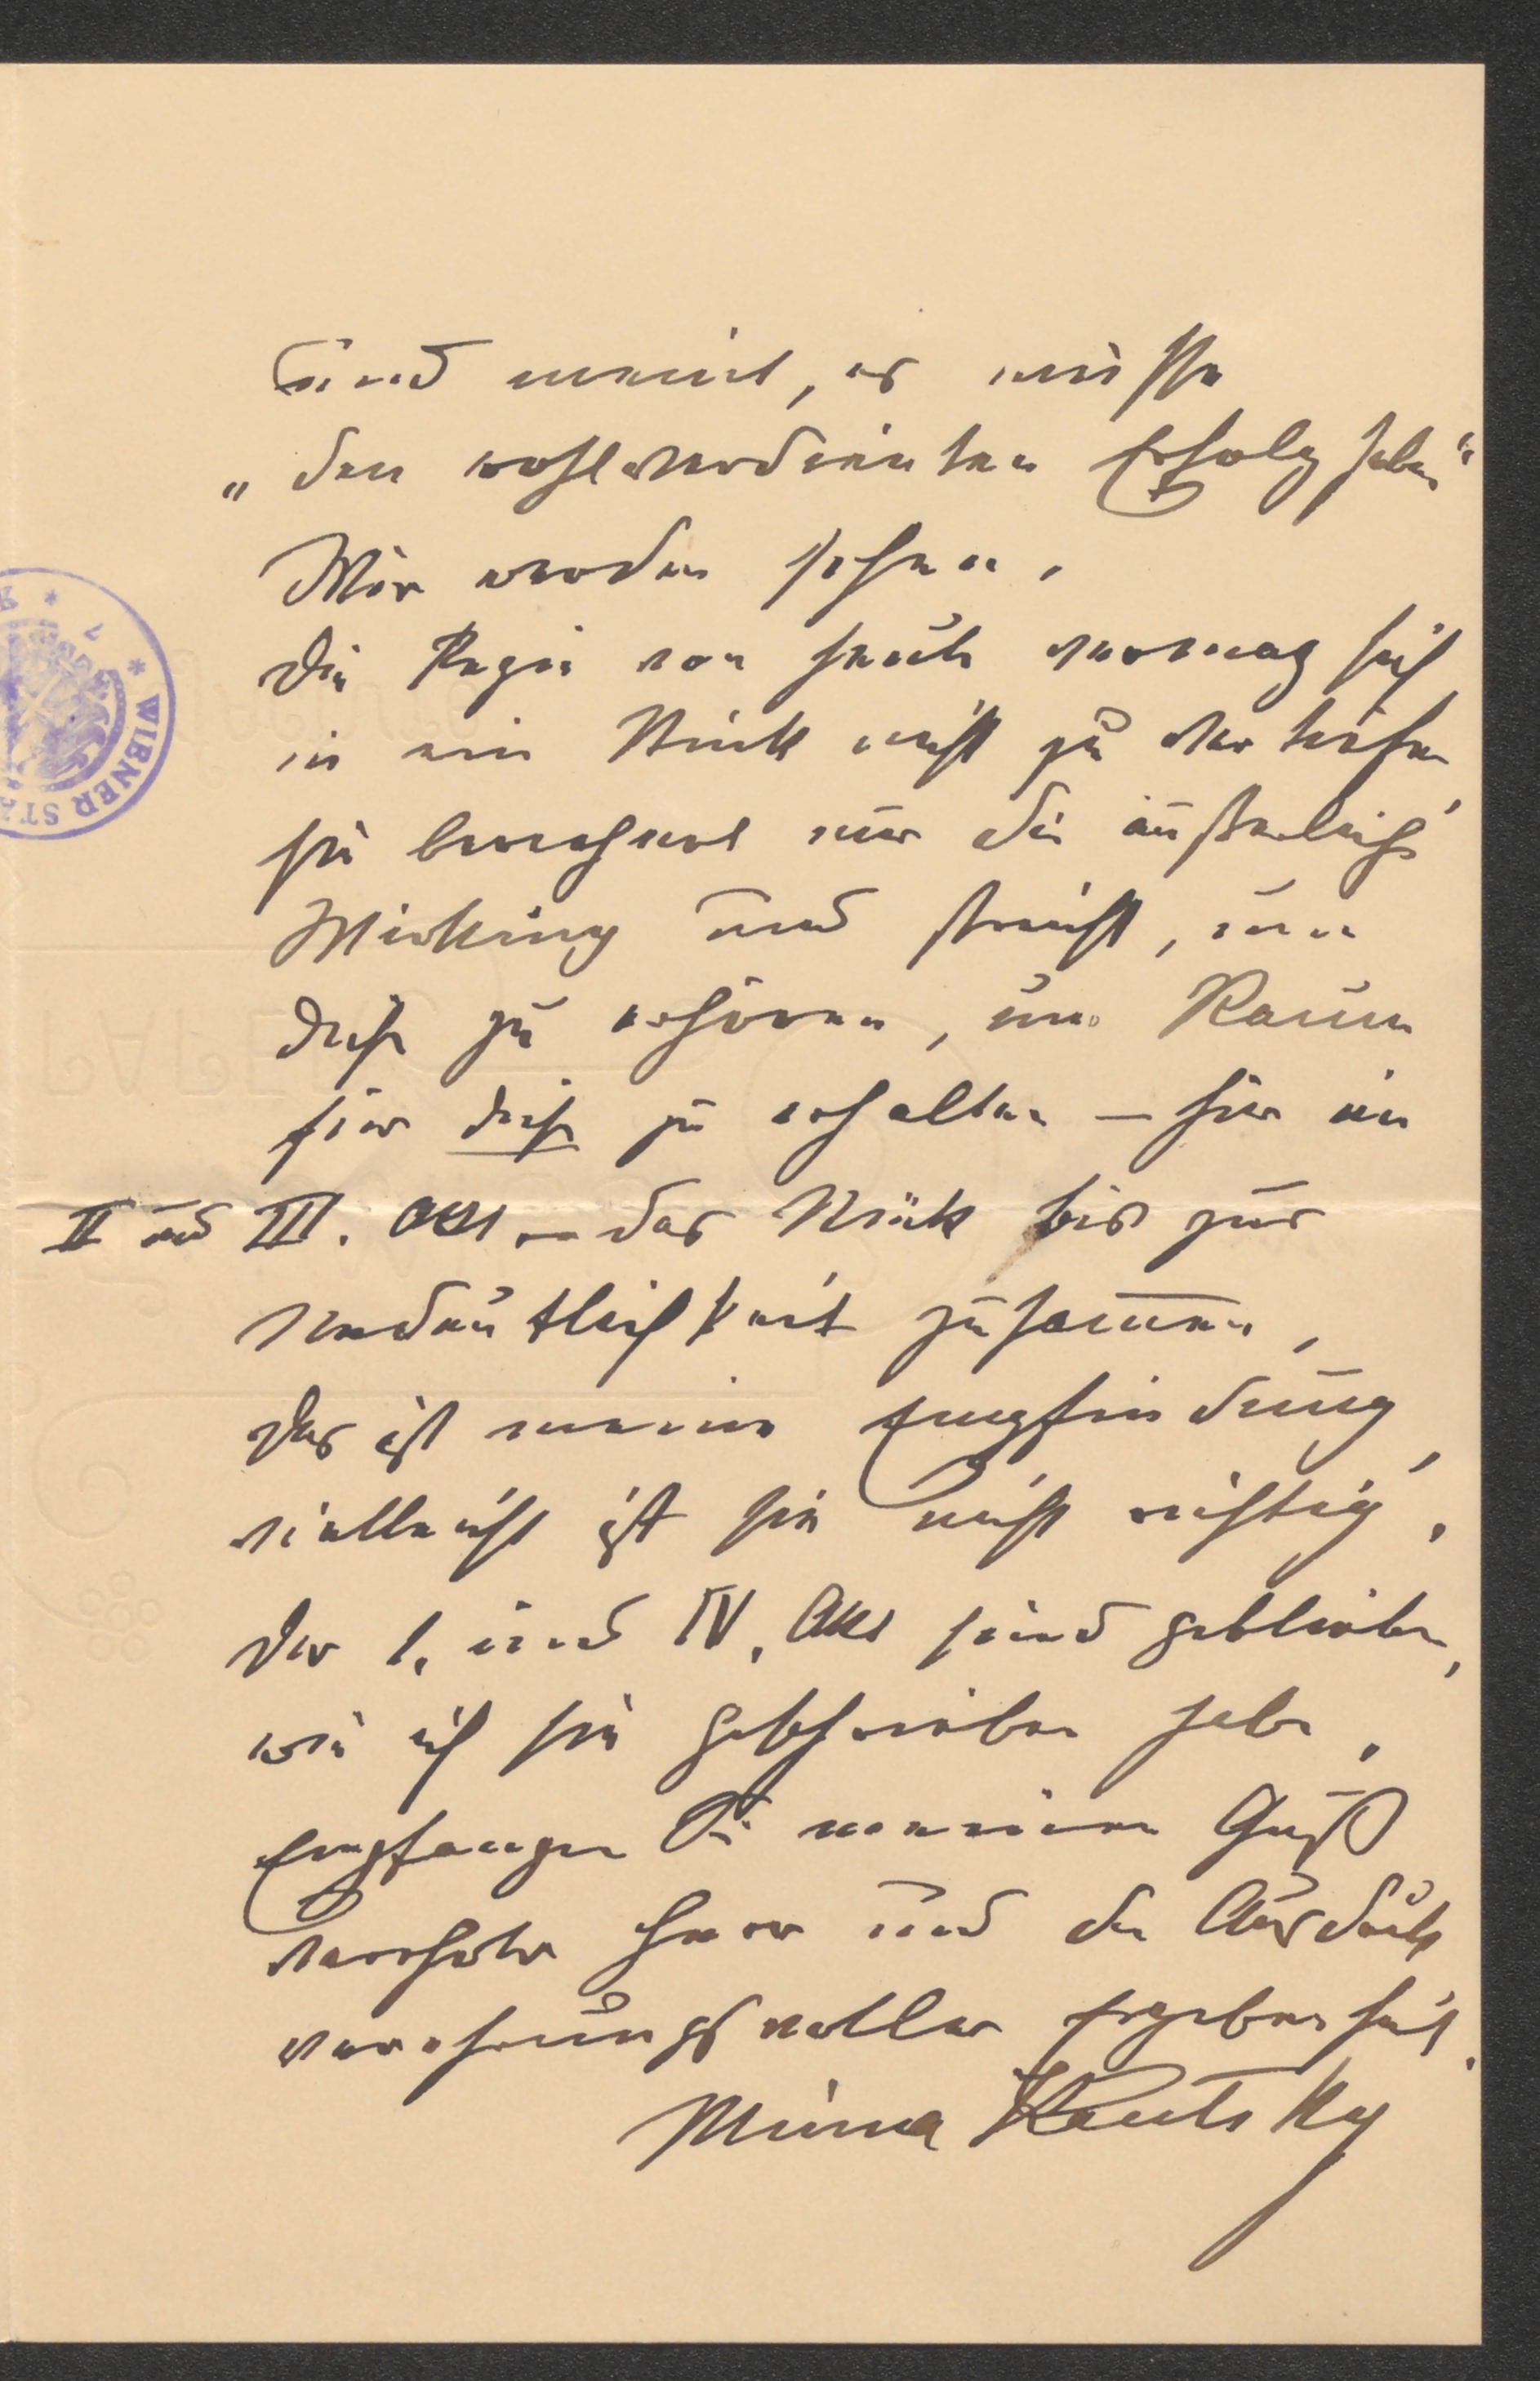 und meint, es müsse
„den wohlverdienten Erfolg haben“
Wir werden sehen.
Die Regie von heute vermag sich
in ein Stück nicht zu vertiefen,
sie berechnet nur die äußerliche
Wirkung und streicht, um
diese zu erhöhen, um Raum
für diese zu erhalten – hier im
II und III. Akt – das Stück bis zur
Undeutlichkeit zusammen.
Das ist meine Empfindung,
vielleicht ist sie nicht richtig.
Der I. und IV. Akt sind geblieben,
wie ich sie geschrieben habe.
Empfangen Sie meinen Gruß
verehrter Herr und den Ausdruck
verehrungsvoller Ergebenheit.
Minna Kautsky
WIENER STA